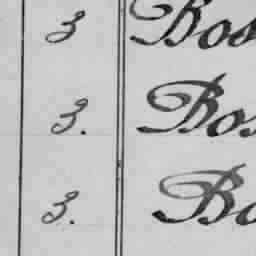 3 Bos
3. Bos
3. Bo